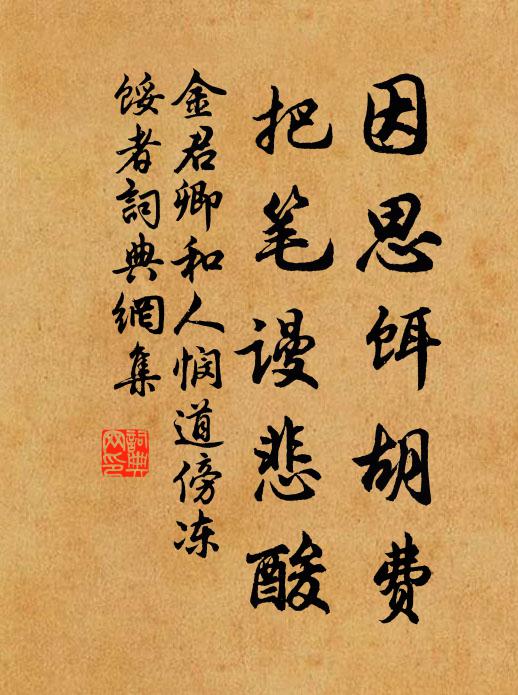 因思饵胡费
把笔谩悲酸
金君卿和人悯道傍冻
馁者詞典網集
詞典
网印